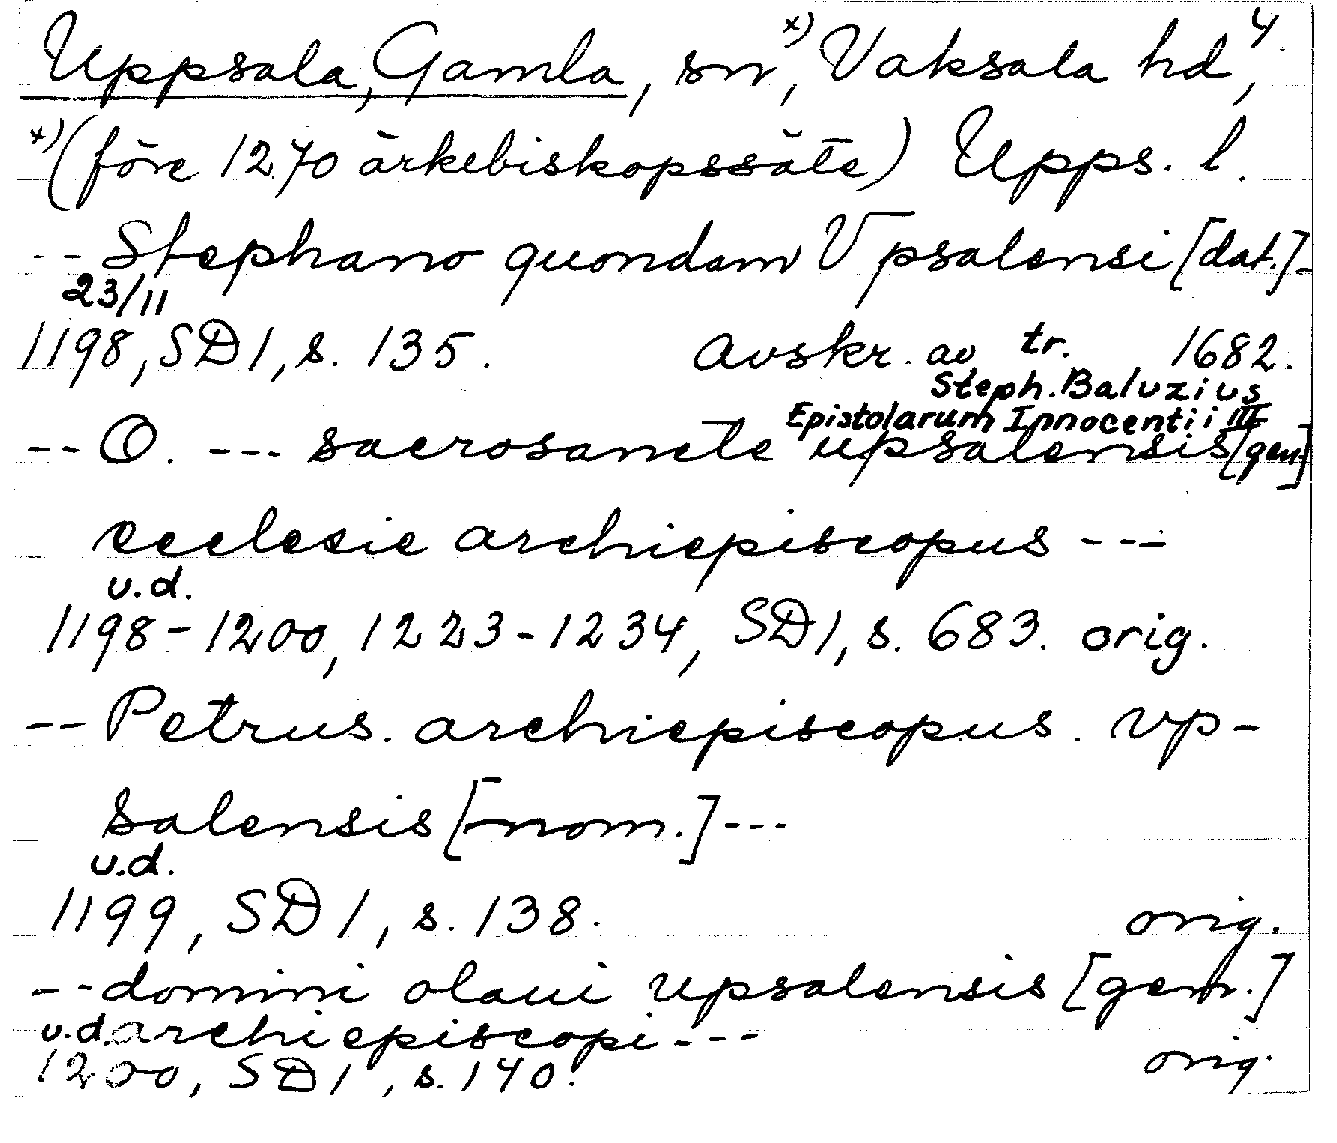 Uppsala, Gamla, sn, x) Vaksala hd, 4.
x) (före 1270 ärkebiskopssäte) Upps. l.
-- Stephano quondam Vpsalensi [dat.] -
23/11
1198, SD 1, s. 135. Avskr. av tr. 1682.
Steph. Baluzius
Epistolarum Innocentii III
-- O. --- sacrosancte upsalensis [gen.]
ecclesie archiepiscopus ---
u.d.
1198-1200, 1223-1234, SD 1, s. 683. orig.
-- Petrus. archiepiscopus. vp-
salensis [nom.] ---
u.d.
1199, SD 1, s. 138. orig.
-- domini olaui upsalensis [gen.]
u.d. archiepiscopi ---
1200, SD 1, s. 140. orig.